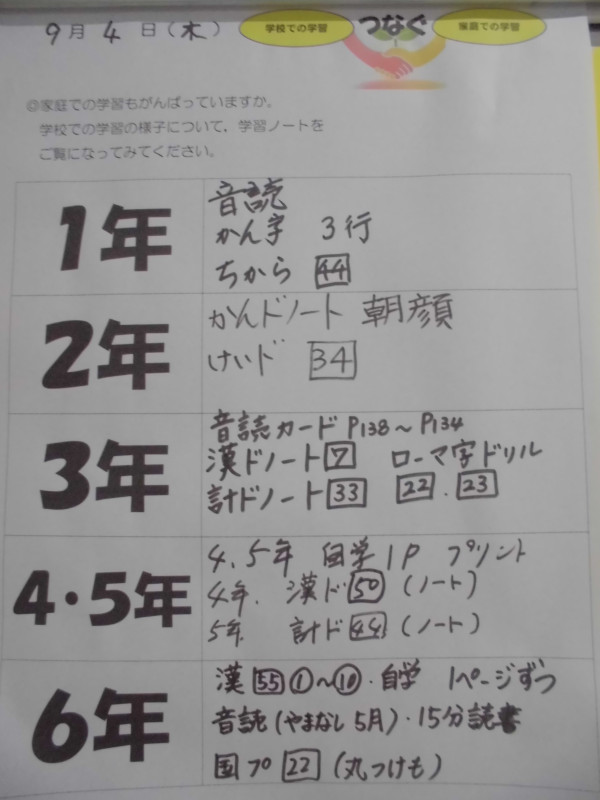 9月 4 日(木)
学校での学習
つなぐ
家庭での学習
◎家庭での学習もがんばっていますか。
学校での学習の様子について、学習ノートを
ご覧になってみてください。
1年
音読
かん字 3行
ちから 44
2年
かんドノート 朝顔
けいド 34
3年
音読カード P138～P134
漢ドノート 7 ローマ字ドリル
計ドノート 33 22．23
4・5年
4．5年 自学1P プリント
4年．漢ド50（ノート）
5年 計ド44（ノート）
6年
漢55①～⑩・自学 1ページずつ
音読（やまなし5月）・15分読書
国プ22（丸つけも）